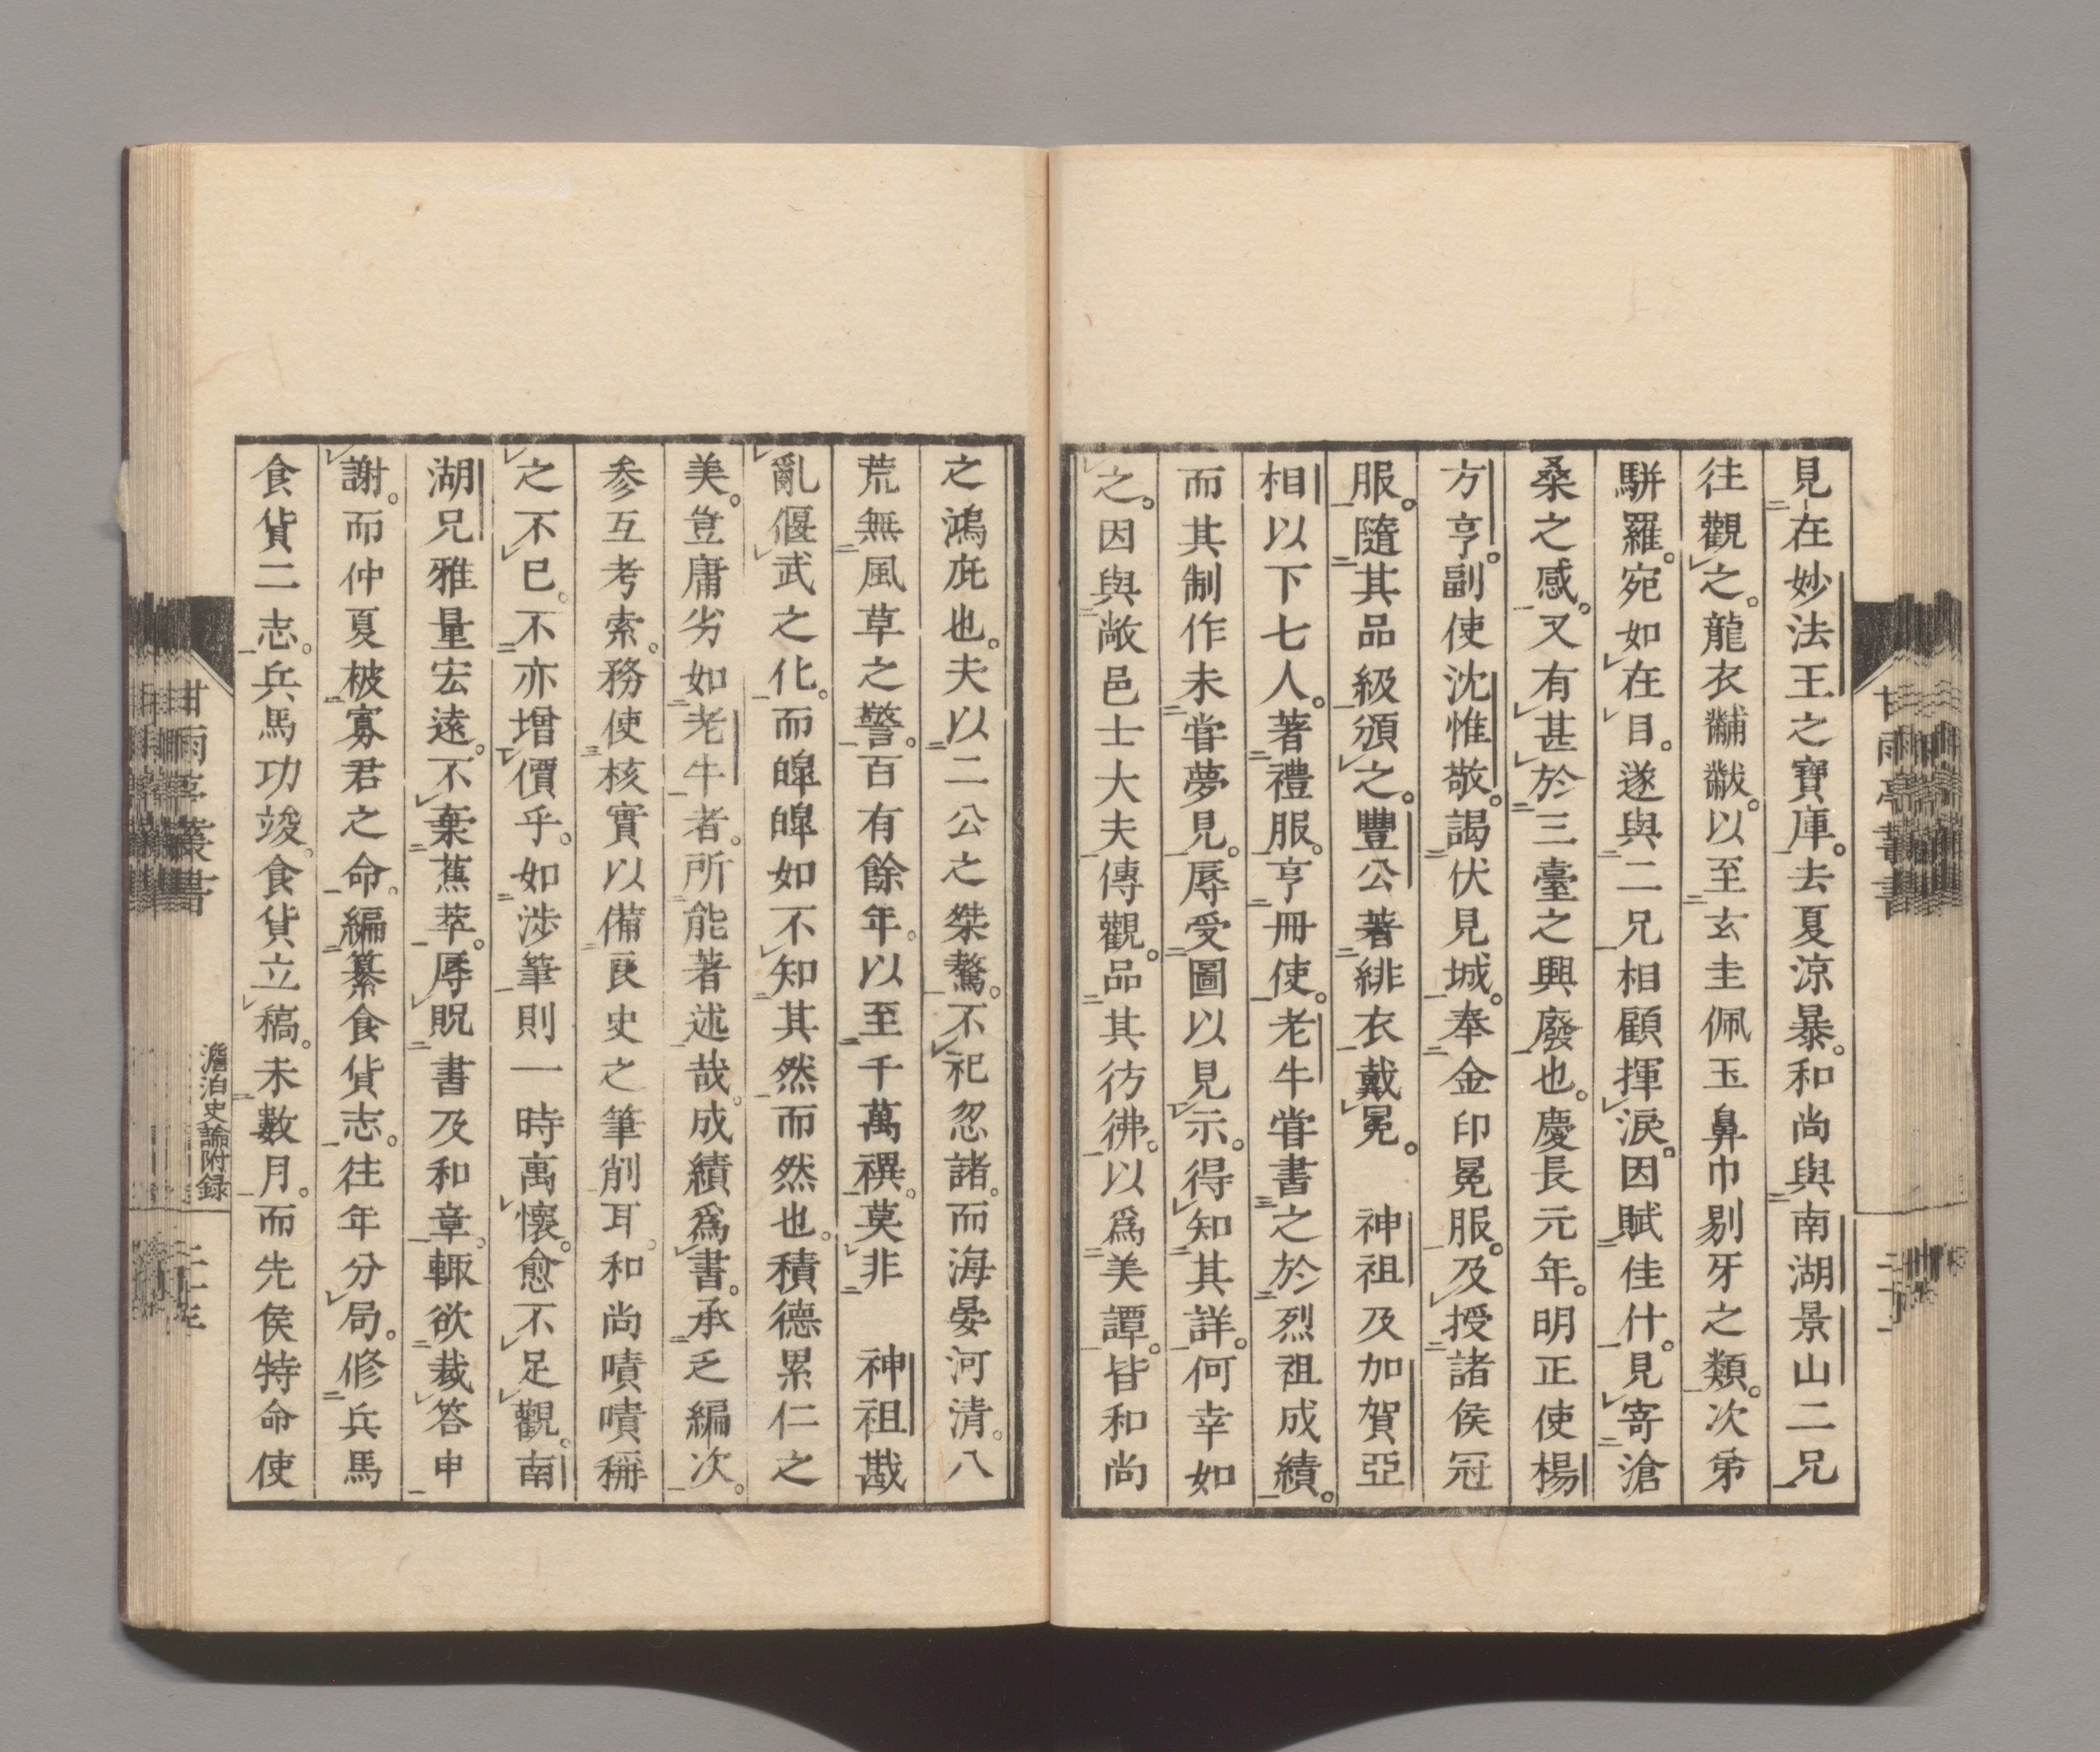 見在妙法王之寶庫。去夏涼暴。和尚與南湖景山二兄
往觀之。龍衣黼黻。以至玄圭佩玉鼻巾剔牙之類。次第
駢羅。宛如在目。遂與二兄相顧揮淚。因賦佳什。見寄滄
桑之感。又有甚於三臺之興廢也。慶長元年。明正使楊
方亨。副使沈惟敬。謁伏見城。奉金印冕服。及授諸侯冠
服。隨其品級頒之。豐公著緋衣戴冕。 神祖及加賀亞
相以下七人。著禮服。亨冊使。老牛嘗書之於烈祖成績。
而其制作未嘗夢見。辱受圖以見示。得知其詳。何幸如
之。因與敞邑士大夫傳觀。品其彷彿。以爲美譚。皆和尚
之鴻庇也。夫以二公之桀驁。不祀忽諸。而海晏河清。八
荒無風草之警。百有餘年。以至千萬禩。莫非 神祖戡
亂偃武之化。而皥皥如不知其然而然也。積德累仁之
美。豈庸劣如老牛者。所能著述哉。成績爲書。承乏編次。
参互考索。務使核實以備良史之筆削耳。和尚嘖嘖稱
之不已。不亦增價乎。如渉筆則一時寓懷。愈不足觀。南
湖兄雅量宏遠。不棄蕉萃。辱貺書及和章。輙欲裁答申
謝。而仲夏被寡君之命。編纂食貨志。往年分局。修兵馬
食貨二志。兵馬功竣。食貨立稿。未數月。而先侯特命使
甘雨亭叢書
澹泊史論附録